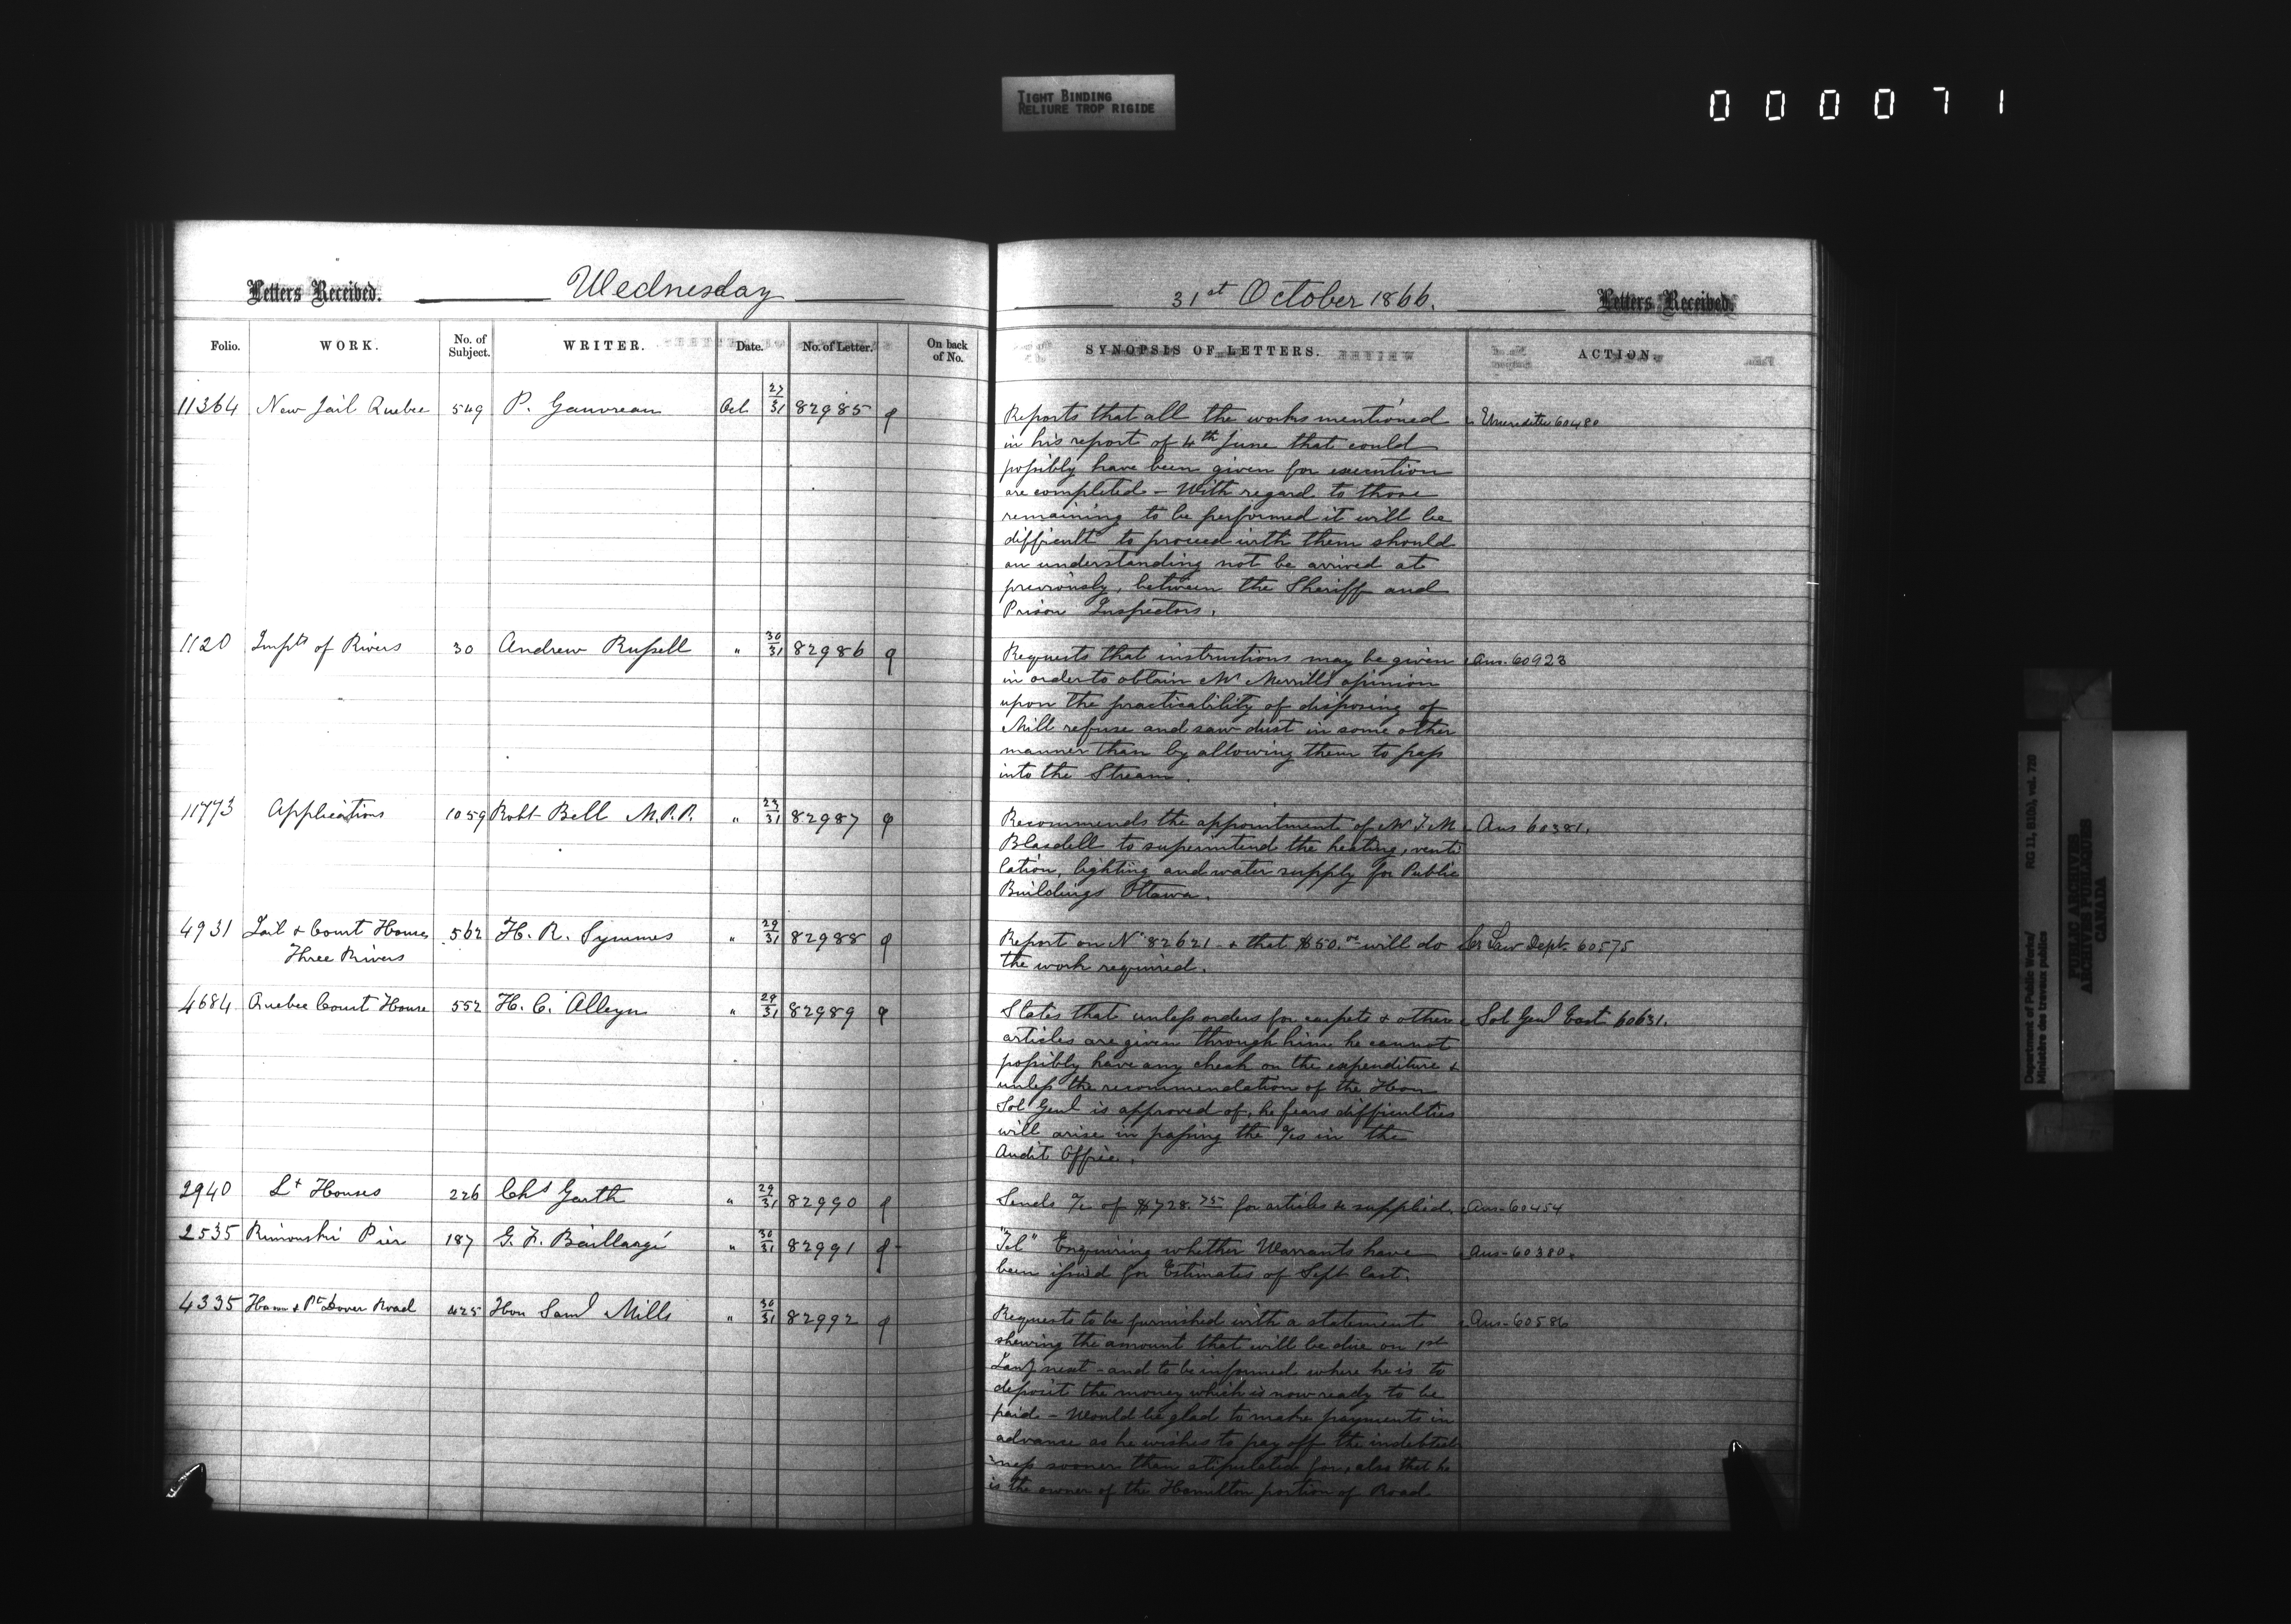 TIGHT BINDING
RELIURE TROP RIGIDE
000071
Letters Received. Wednesday
31st October 1866. Letters Received.
Folio. WORK. No. of Subject. WRITER. Date. No. of Letter. On back of No.
SYNOPSIS OF LETTERS. ACTION.
11364 New Jail Quebec 549 P. Gauvreau Oct 27/31 82985
Reports that all the works mentioned Meredith 60480
in his report of 4th June that could
possibly have been given for execution
are completed - With regard to those
remaining to be performed it will be
difficult to proceed with them should
an understanding not be arrived at
previously, between the Sheriff and
Prison Inspectors.
1120 Impts of Rivers 30 Andrew Russell " 30/31 82986
Requests that instructions may be given Ans. 60923
in order to obtain Mr Merrill's opinion
upon the practicability of disposing of
Mill refuse and saw dust in some other
manner than by allowing them to pass
into the Stream.
11773 Applications 1059 Robt Bell M.P.P. " 29/31 82987
Recommends the appointment of Mr J. M Ans 60381.
Blasdell to superintend the heating, venti
lation, lighting and water supply for Public
Buildings Ottawa.
4931 Jail & Court House 562 H. R. Symmes " 29/31 82988
Three Rivers
Report on No 82621 & that $50.00 will do Cr Law Dept. 60575
the work required.
4684 Quebec Court House 552 H. C. Alleyn " 29/31 82989
States that unless orders for carpets & other Sol Genl East 60631.
articles are given through him he cannot
possibly have any check on the expenditure &
unless the recommendation of the Hon
Sol Genl is approved of, he fears difficulties
will arise in passing the a/cs in the
Audit Office.
2940 Lt Houses 226 Chs Garth " 29/31 82990
Sends a/c of $728.75 for articles &c supplied. Ans-60454
2535 Rimouski Pier 187 G. F. Baillargé " 30/31 82991
"Tel" Enquiring whether Warrants have Ans-60380.
been issued for Estimates of Sept last.
4335 Ham & Pt Dover Road 425 Hon Saml Mills " 30/31 82992
Requests to be furnished with a statement Ans-60586
shewing the amount that will be due on 1st
Jany next - and to be informed where he is to
deposit the money which is now ready to be
paid - Would be glad to make payments in
advance as he wishes to pay off the indebted
ness sooner than stipulated for, also that he
is the owner of the Hamilton portion of Road
Department of Public Works/ RG 11, B1(b), vol. 720
Ministère des travaux publics
PUBLIC ARCHIVES
ARCHIVES PUBLIQUES
CANADA